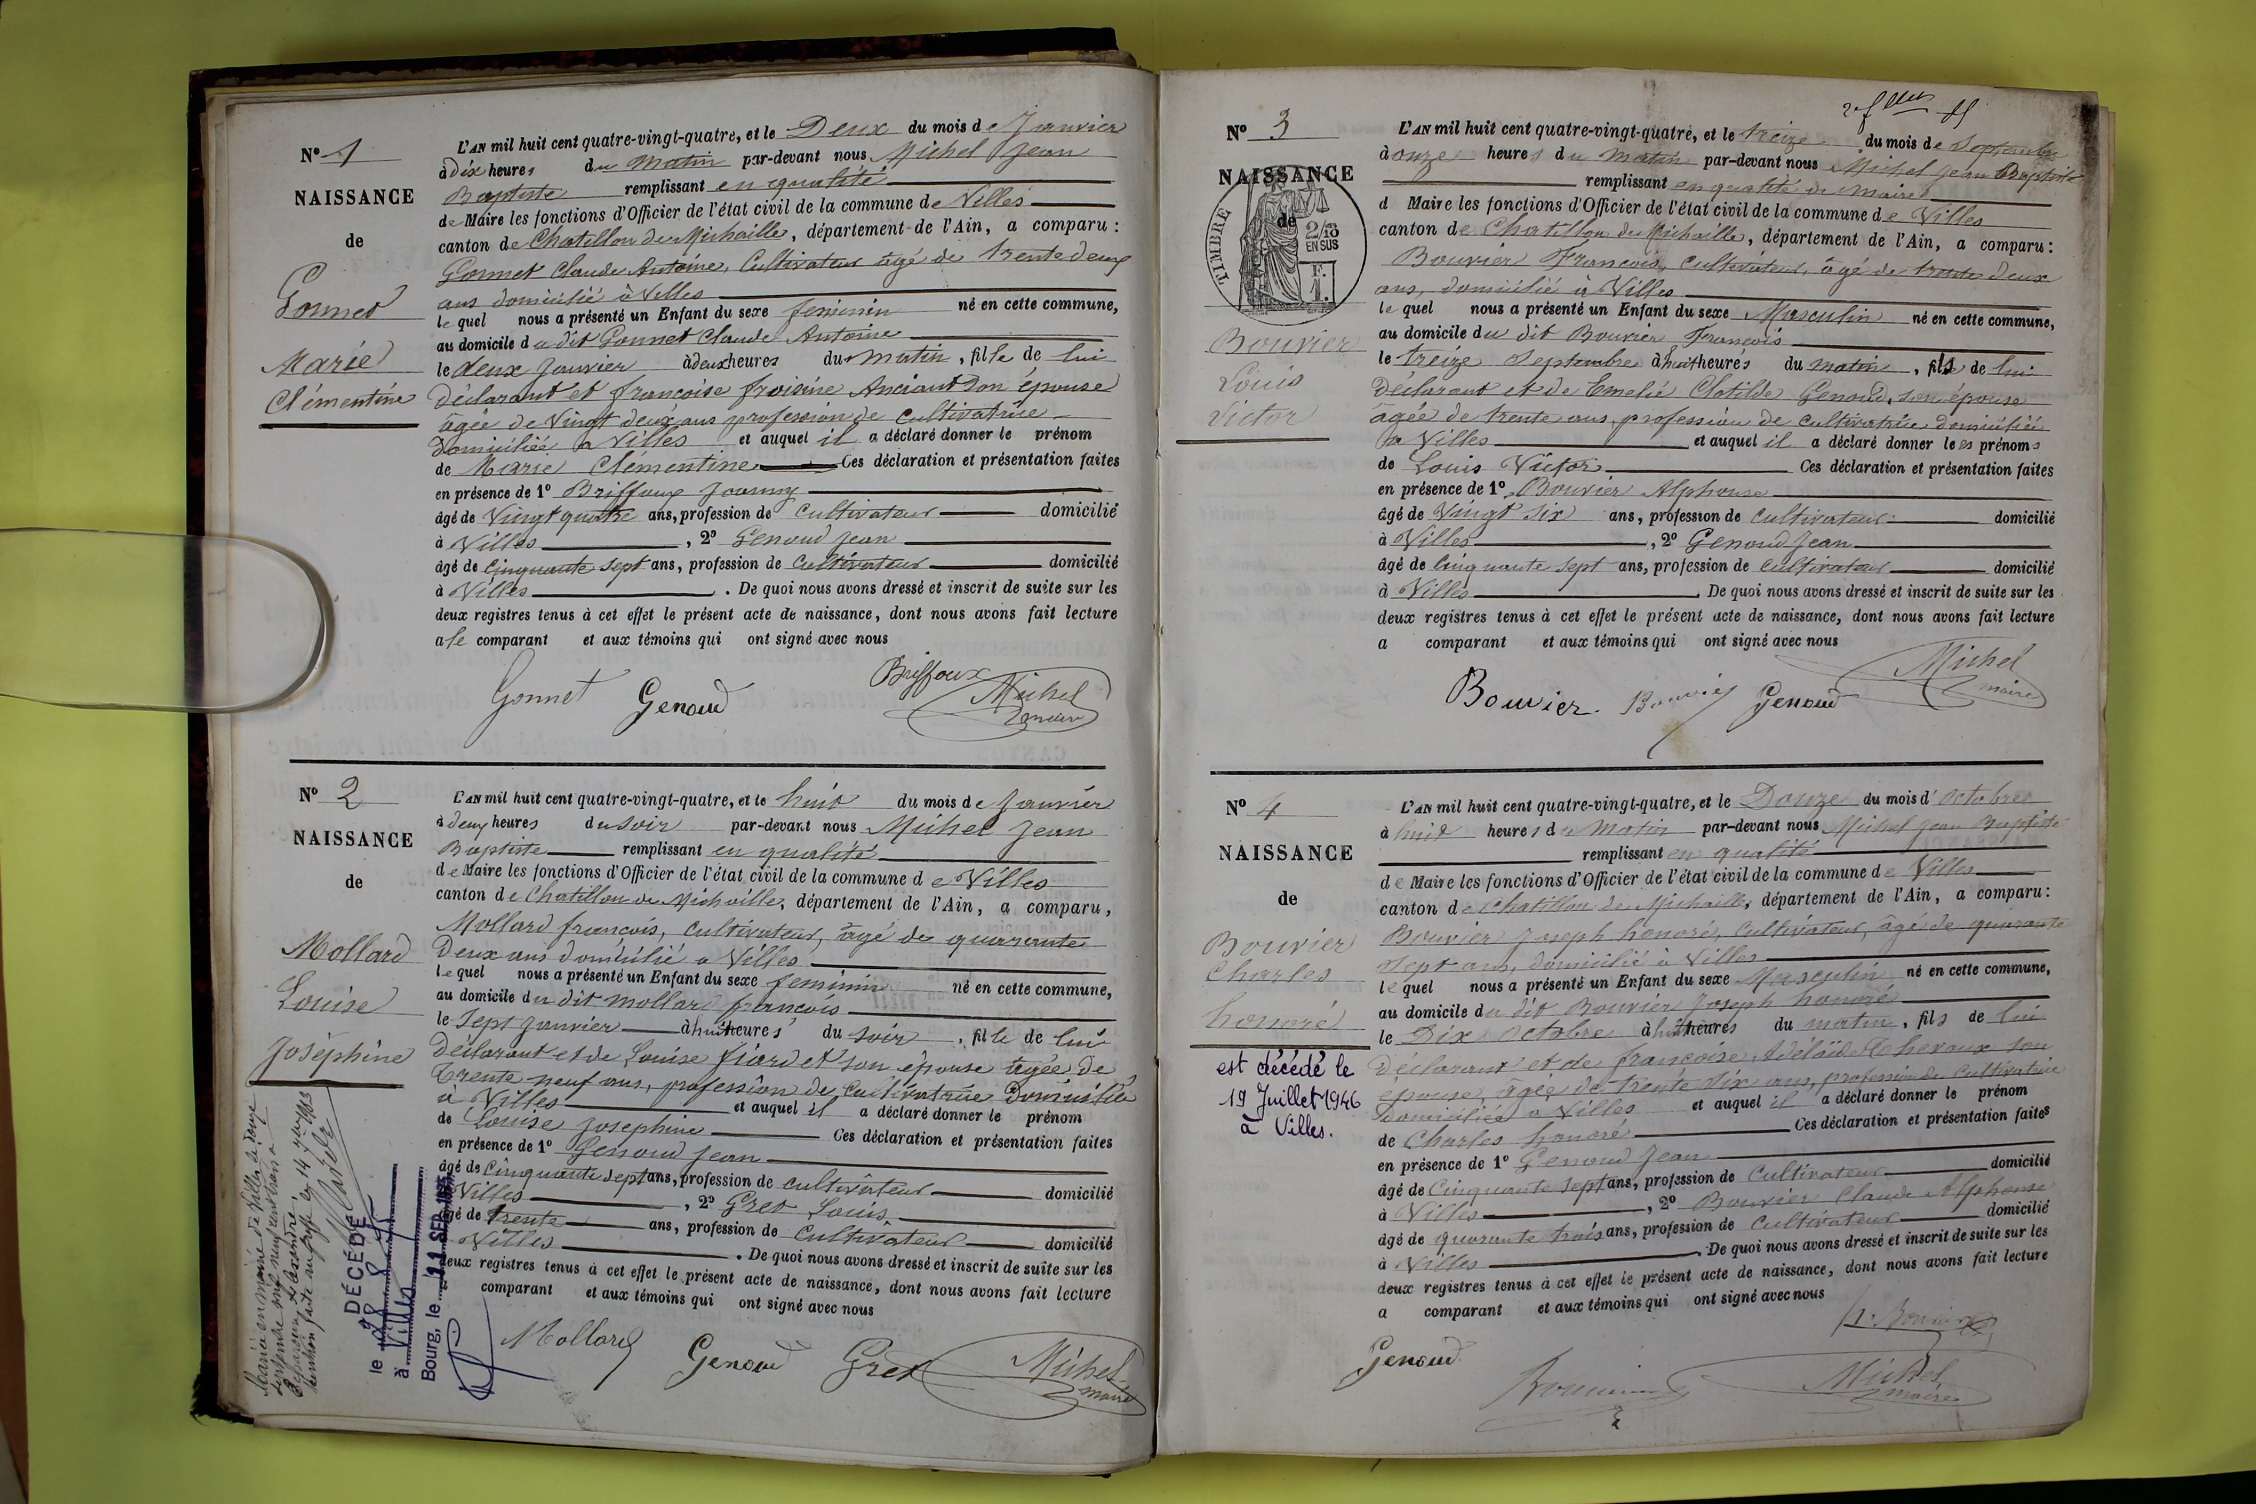 N° 1
NAISSANCE
de
Gonnet
Marie
Clémentine
L'AN mil huit cent quatre-vingt-quatre, et le Deux du mois de Janvier
à dix heures du Matin par-devant nous Michel Jean
Baptiste remplissant en qualité
de Maire les fonctions d'Officier de l'état civil de la commune de Villes
canton de Chatillon de Michaille, département de l'Ain, a comparu :
Gonnet Claude Antoine, Cultivateur âgé de trente deux
ans domicilié à Villes
lequel nous a présenté un Enfant du sexe feminin né en cette commune,
au domicile du dit Gonnet Claude Antoine
le deux Janvier à deux heures du matin, fille de lui
déclarant et françoise froisine son épouse
âgée de Vingt deux ans profession de cultivatrice
domiciliée a Villes et auquel il a déclaré donner le prénom
de Marie Clémentine Ces déclaration et présentation faites
en présence de 1° Briffoux
âgé de Vingt quatre ans, profession de Cultivateur domicilié
à Villes, 2° Genoud Jean
âgé de Cinquante sept ans, profession de Cultivateur domicilié
à Villes. De quoi nous avons dressé et inscrit de suite sur les
deux registres tenus à cet effet le présent acte de naissance, dont nous avons fait lecture
a le comparant et aux témoins qui ont signé avec nous
Gonnet Genoud Briffoux Michel
maire
N° 2
NAISSANCE
de
Mollard
Louise
Joséphine
L'AN mil huit cent quatre-vingt-quatre, et le huit du mois de Janvier
à deux heures du soir par-devant nous Michel Jean
Baptiste remplissant en qualité
de Maire les fonctions d'Officier de l'état civil de la commune de Villes
canton de Chatillon de Michaille, département de l'Ain, a comparu,
Mollard françois, cultivateur, âgé de quarante
Deux ans domicilié a Villes
lequel nous a présenté un Enfant du sexe feminin né en cette commune,
au domicile du dit mollard françois
le Sept Janvier à huit heures du soir, fille de lui
déclarant et de Louise son épouse âgée de
trente neuf ans, profession de Cultivatrice Domiciliée
à Villes et auquel il a déclaré donner le prénom
de Louise Josephine Ces déclaration et présentation faites
en présence de 1° Genoud Jean
âgé de Cinquante sept ans, profession de cultivateur domicilié
Villes, 2° Gret Louis
âgé de trente ans, profession de Cultivateur domicilié
Villes. De quoi nous avons dressé et inscrit de suite sur les
deux registres tenus à cet effet le présent acte de naissance, dont nous avons fait lecture
comparant et aux témoins qui ont signé avec nous
Mollard Genoud Gret Michel
maire
DÉCÉDÉ
le
à Villes
Bourg, le 11 SEP
N° 3
NAISSANCE
de
TIMBRE
2/10
EN SUS
F.
1.
Bouvier
Louis
Victor
L'AN mil huit cent quatre-vingt-quatre, et le treize du mois de Septembre
à onze heures du Matin par-devant nous Michel Jean Baptiste
remplissant en qualité de maire
d Maire les fonctions d'Officier de l'état civil de la commune de Villes
canton de Chatillon de Michaille, département de l'Ain, a comparu :
Bouvier François, cultivateur, âgé de trente deux
ans, domicilié a Villes
le quel nous a présenté un Enfant du sexe Masculin né en cette commune,
au domicile du dit Bouvier François
le treize Septembre à huit heures du matin, fils de lui
déclarant et de Emelie Clotilde Genoud, son épouse
âgée de trente ans, profession de cultivatrice domiciliée
a Villes et auquel il a déclaré donner les prénoms
de Louis Victor Ces déclaration et présentation faites
en présence de 1° Bouvier Alphonse
âgé de Vingt Six ans, profession de Cultivateur domicilié
à Villes, 2° Genoud Jean
âgé de Cinquante sept ans, profession de cultivateur domicilié
à Villes. De quoi nous avons dressé et inscrit de suite sur les
deux registres tenus à cet effet le présent acte de naissance, dont nous avons fait lecture
a comparant et aux témoins qui ont signé avec nous
Bouvier Bouvier Genoud Michel
maire
N° 4
NAISSANCE
de
Bouvier
Charles
honoré
est décédé le
19 Juillet 1946
à Villes.
L'AN mil huit cent quatre-vingt-quatre, et le Douze du mois d'octobre
à huit heures du Matin par-devant nous Michel Jean Baptiste
remplissant en qualité
de Maire les fonctions d'Officier de l'état civil de la commune de Villes
canton de Chatillon de Michaille, département de l'Ain, a comparu :
Bouvier Joseph honoré, Cultivateur, âgé de quarante
Sept ans, domicilié à Villes
lequel nous a présenté un Enfant du sexe Masculin né en cette commune,
au domicile du dit Bouvier Joseph honoré
le Dix Octobre à huit heures du matin, fils de lui
déclarant et de françoise Adélaïde son
épouse, âgée de trente six ans, profession de Cultivatrice
Domiciliée a Villes et auquel il a déclaré donner le prénom
de Charles honoré Ces déclaration et présentation faites
en présence de 1° Genoud Jean
âgé de Cinquante sept ans, profession de Cultivateur domicilié
à Villes, 2° Bouvier Claude Alphonse
âgé de quarante trois ans, profession de Cultivateur domicilié
à Villes. De quoi nous avons dressé et inscrit de suite sur les
deux registres tenus à cet effet le présent acte de naissance, dont nous avons fait lecture
a comparant et aux témoins qui ont signé avec nous
Genoud Michel
maire